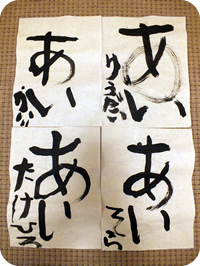 あい
りうだい
あい
あい
そら
あい
たけひろ